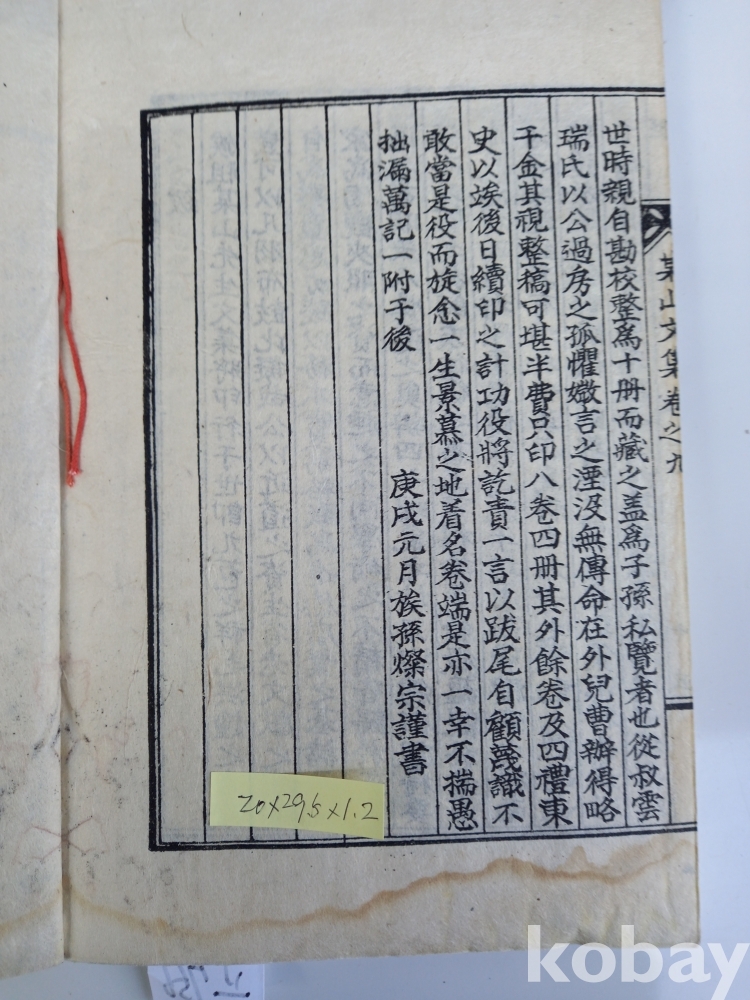 世時親自勘校整爲十册而藏之盖爲子孫私覽者也從叔雲
瑞氏以公過房之孤懼媺言之湮没無傳命在外兒曹辦得略
干金其視整稿可堪半費只印八卷四册其外餘卷及四禮東
史以竢後日續印之計功役將訖責一言以跋尾自顧蔑識不
敢當是役而旋念一生景慕之地着名卷端是亦一幸不揣愚
拙漏萬記一附于後
庚戌元月族孫燦宗謹書
山文集卷之九
20×29.5×1.2
kobay